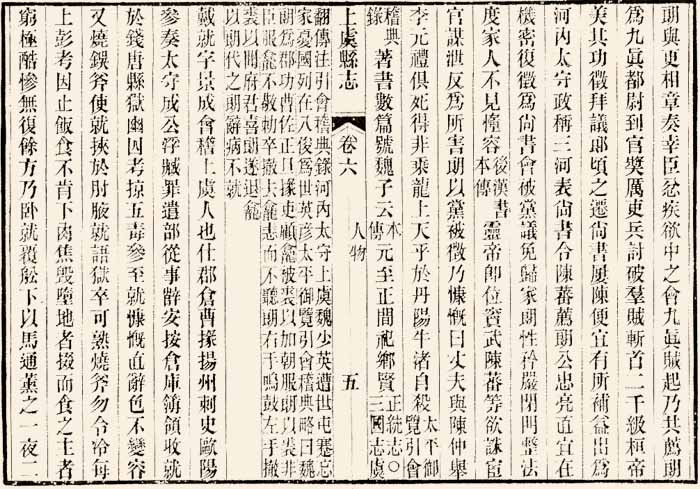 朗與更相章奏幸臣忿疾欲中之會九眞賊起乃共薦朗
爲九眞都尉到官奬厲吏兵討破羣賊斬首二千級桓帝
美其功徵拜議郎頃之遷尚書屢陳便宜有所補益出爲
河內太守政稱三河表尚書令陳蕃薦朗公忠亮直宜在
機密復徵爲尚書會被黨議免歸家朗性矜嚴閉門整法
度家人不見憜容後漢書本傳靈帝卽位竇武陳蕃等欲誅宦
官謀泄反爲所害朗以黨被徵乃慷慨曰丈夫與陳仲舉
李元禮俱死得非乘龍上天乎於丹陽牛渚自殺太平御覽引會
稽典錄著書數篇號魏子云本傳元至正間祀鄉賢正統志○三國志虞
上虞縣志 卷六 人物 五
翻傳注引會稽典錄河內太守上虞魏少英遭世屯蹇忘
家憂國列在八俊爲世英彥太平御覽引會稽典略曰魏
朗爲郡功曹佐正旦掾吏顧龕被裘以加朝服朗以裘非
臣服龕不敬勅卒撤去龕恚而不聽朗右手鳴鼓左手撤
裘以聞府君喜朗遂退龕
以朗代之朗辭病不就
戴就字景成會稽上虞人也仕郡倉曹掾揚州刺史歐陽
參奏太守成公浮贓罪遣部從事薛安按倉庫簿領收就
於錢唐縣獄幽囚考掠五毒參至就慷慨直辭色不變容
又燒鋘斧使就挾於肘腋就語獄卒可熟燒斧勿令冷每
上彭考因止飯食不肯下肉焦毀墮地者掇而食之主者
窮極酷慘無復餘方乃臥就覆船下以馬通薰之一夜二